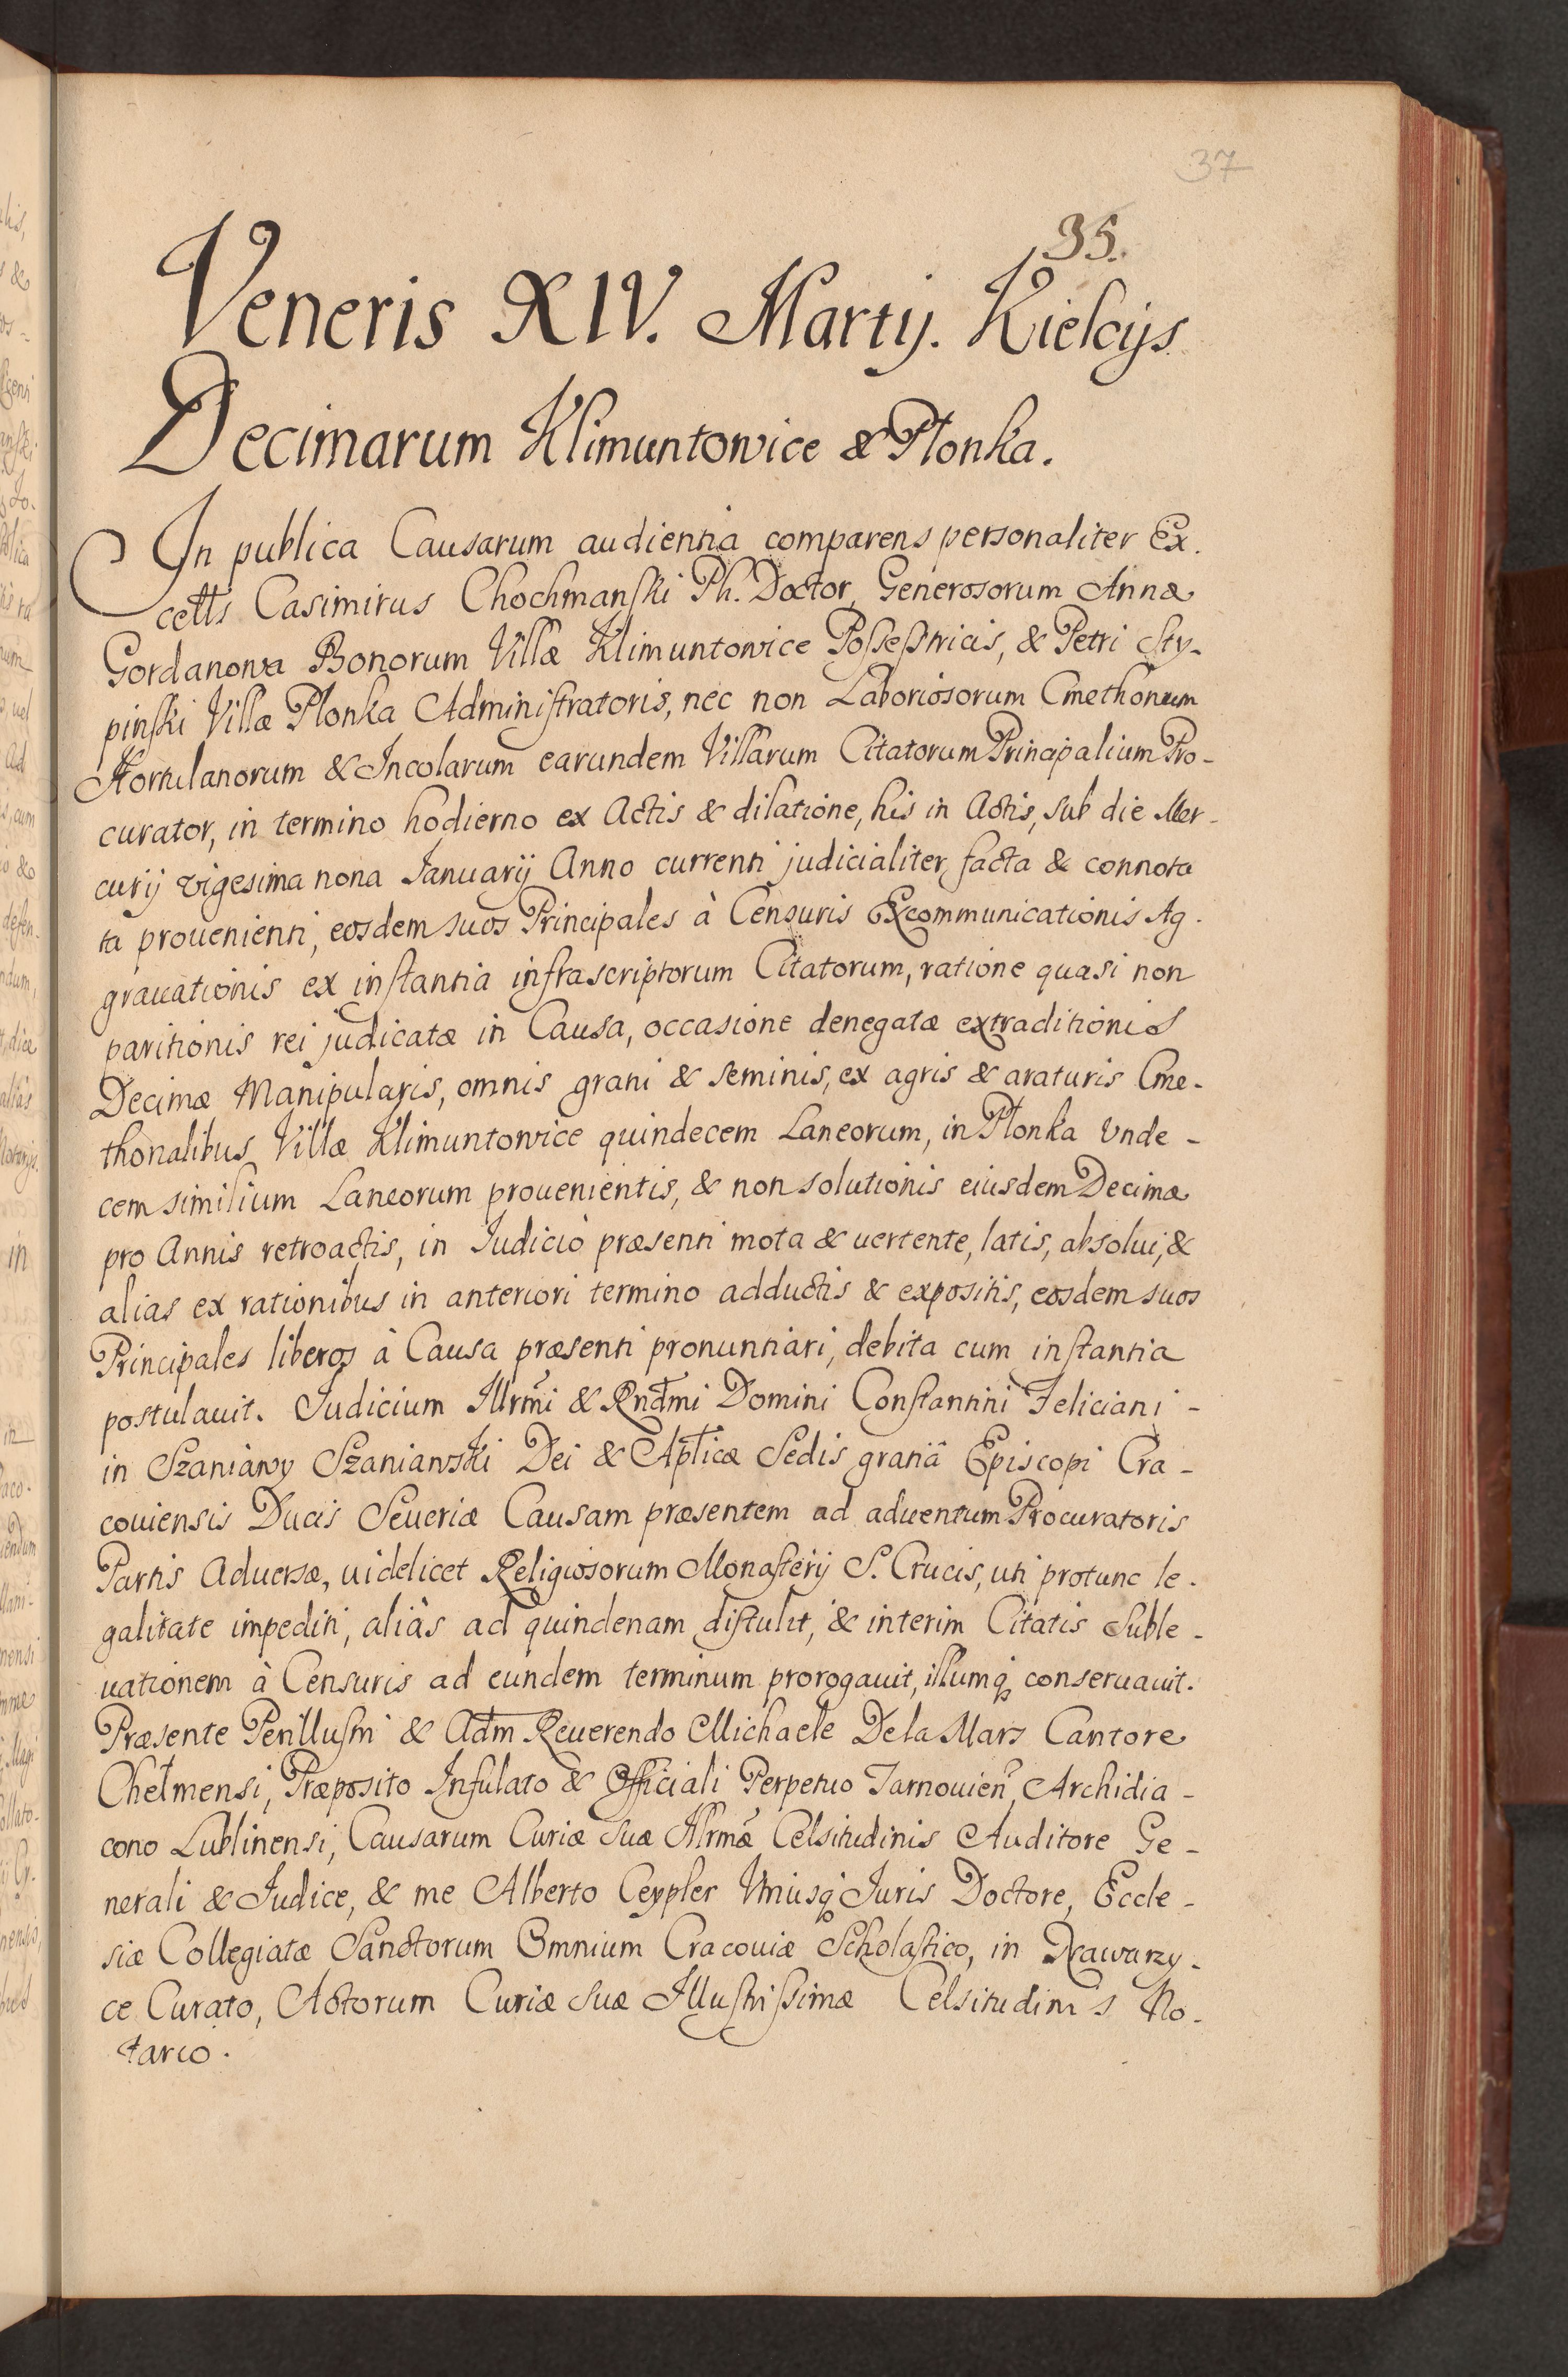 37
35.
Veneris XIV. Martij. Kielcijs
Decimarum Klimuntowice & Płonka.
In publica Causarum audientia comparens personaliter Ex.
cells Casimirus Chochmanski Ph. Doctor, Generosorum Annæ
Gordanowa Bonorum Villæ Klimuntowice Possestricis, & Petri Sty-
pinski Villæ Płonka Administratoris, nec non Laboriosorum Cmethonum
Hortulanorum & Incolarum earundem Villarum Citatorum Principalium Pro-
curator, in termino hodierno ex Actis & dilatione, his in Actis, sub die Mer-
curij vigesima nona Januarij Anno currenti judicialiter facta & connota
ta prouenienti, eosdem suos Principales à Censuris Excommunicationis Ag.
grauationis ex instantia infrascriptorum Citatorum, ratione quasi non
paritionis rei judicatæ in Causa, occasione denegatæ extraditionis
Decimæ Manipularis, omnis grani & seminis, ex agris & araturis Cme-
thonalibus Villæ Klimuntowice quindecem Laneorum, in Płonka Vnde-
cem similium Laneorum prouenientis, & non solutionis eiusdem Decimæ
pro Annis retroactis, in Iudicio præsenti mota & uertente, latis, absolui, &
alias ex rationibus in anteriori termino adductis & expositis, eosdem suos
Principales liberos à Causa præsenti pronuntiari, debita cum instantia
postulauit. Judicium Illrmi & Rndmi Domini Constantini Feliciani -
in Szaniawy Szaniawski Dei & Aplicæ Sedis gratiâ Episcopi Cra-
couiensis Ducis Seueriæ Causam præsentem ad aduentum Procuratoris
Partis Aduersæ, uidelicet Religiosorum Monasterij S. Crucis, uti protunc le.
galitate impediti, aliâs ad quindenam distulit, & interim Citatis Suble-
uationem à Censuris ad eundem terminum prorogauit, illumq; conseruauit.
Præsente Perillusm̃i & Adm Reuerendo Michaele De la Mars Cantore
Chełmensi, Præposito Infulato & Officiali Perpetuo Tarnouien, Archidia-
cono Lublinensi, Causarum Curiæ Suæ Illrmæ Celsitudinis Auditore Ge-
nerali & Judice, & me Alberto Ceypler Vtriusq; Juris Doctore, Eccle-
siæ Collegiatæ Sanctorum Omnium Cracouiæ Scholastico, in Nawarzy-
ce Curato, Actorum Curiæ Suæ Illustrissimæ Celsitudinis No-
tario.